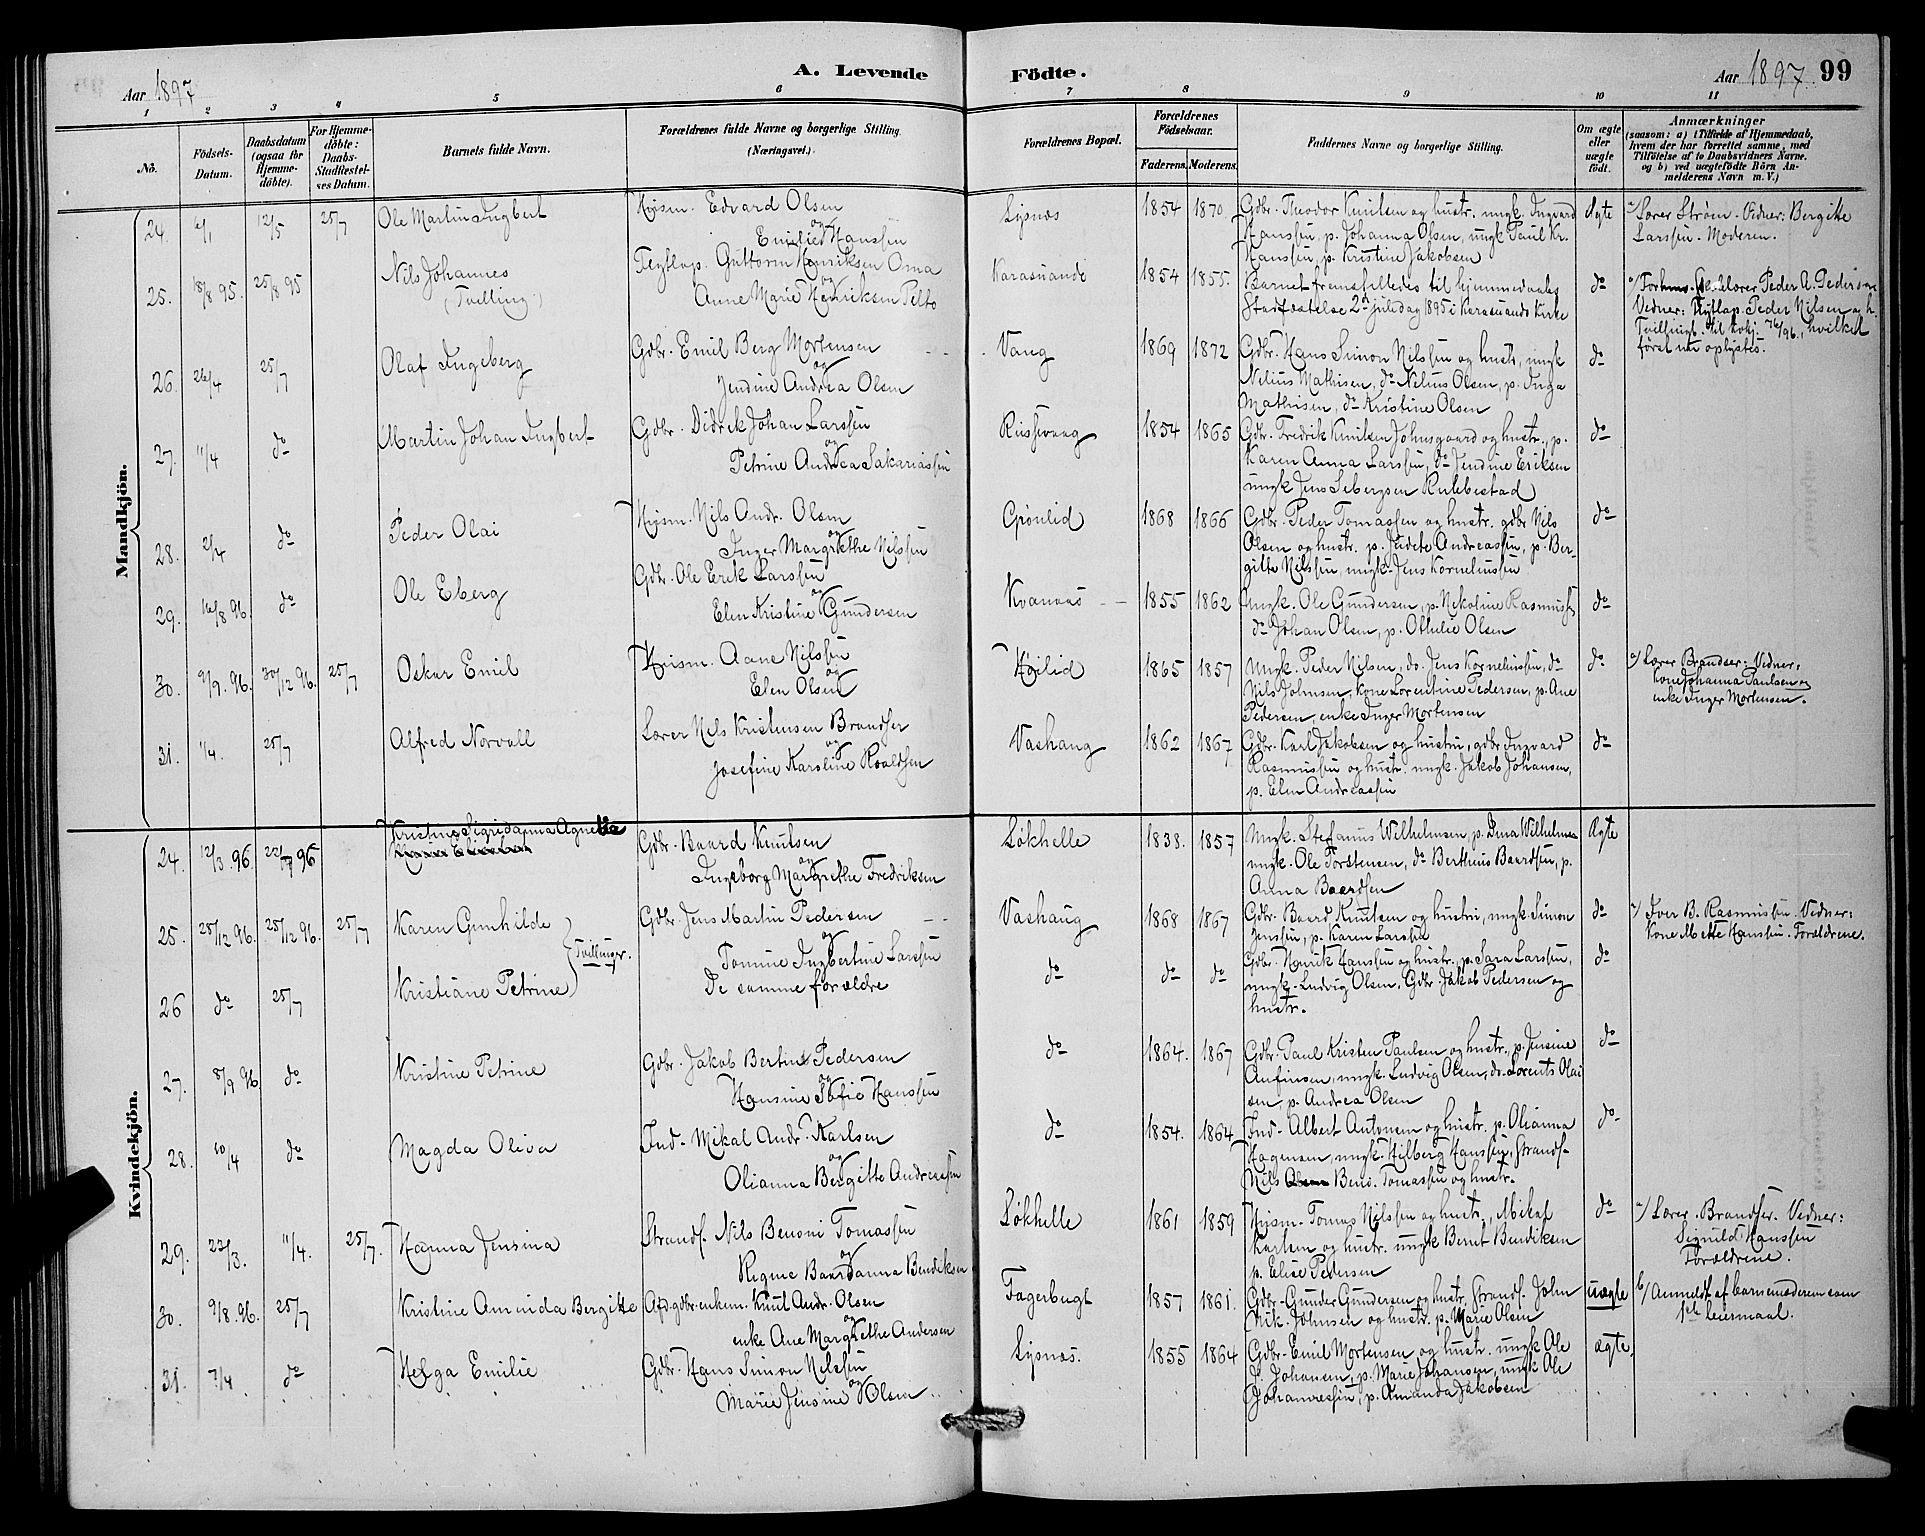 A. Levende Födte.
Aar 1897
Aar 1897. 99
1 2 3 4 5 6 7 8 9 10 11
No.
Födsels-Datum.
Daabsdatum (ogsaa for Hjemme-döbte).
For Hjemme-döbte: Daabs-Stadfæstel-ses Datum.
Barnets fulde Navn.
Forældrenes fulde Navne og borgerlige Stilling. (Næringsvei.)
Forældrenes Bopæl.
Forældrenes Födselsaar.
Faderens. Moderens.
Faddernes Navne og borgerlige Stilling.
Om ægte eller uægte födt.
Anmærkninger
(saasom: a) i Tilfælde af Hjemmedaab, hvem der har forrettet samme, med Tilföielse af to Daabsvidners Navne, og b) ved uægtefödte Börn Anmelderens Navn m. V.)
Mandkjön.
24. 6/1 12/5 25/7 Ole Martin Ingbert
Hüsm. Edvard Olsen
og
Emilie Hanssen
Lysnæs 1854 1870.
Gdbr. Theodor Knutsen og hustr. ungk. Ingvard
Hanssen, p. Johanna Olsen, ungk Paul Kr.
Hanssen, p. Kristine Jakobsen
Ægte
a/ Lærer Strøm. Vidner: Bergitte
Larssen. Moderen.
25. 18/8 95. 25/8 95 Nils Johannes
(Tvilling)
Flytlap. Guttorm Henriksen Oma
og
Anne Marie Henriksen Pilto
Karasuando 1854 1855.
Barnet fremstilledes til hjemmedaabs
Stadfæstelse 2den juledag 1895 i Karasuando Kirke
do
a/ Lærer Peder A. Pedersen
Vidner: Flytlap. Peder Nilsen og h.
Tvilling. hvilket
først nu oplystes.
26. 26/4 25/7 Olaf Ingeberg
Gdbr. Emil Berg Mortensen
og
Jendine Andrea Olsen
Vang 1869 1872
Gdbr. Hans Simon Nilssen og hustr, ungk
Nelius Mathisen, do Nelius Olsen, p. Inga
Mathisen, do Kristine Olsen
do
27. 11/4 do Martin Johan Ingbert
Gdbr. Didrik Johan Larssen
og
Petrine Andrea Sakariassen
Russevaag 1854 1865
Gdbr. Fredrik Knutsen Johnsgaard og hustr., p.
Karen Anna Larssen, do Jendine Eriksen
ungk Jens Sebergsen Rubbestad
do
28. 2/4 do Peder Olai
Hüsm. Nils Andr. Olsen
og
Inger Margrethe Nilssen
Grønlid 1868 1866
Gdbr. Peder Tomassen og hustr. gdbr Nils
Olsen og hustr. p. Judete Andreassen, p. Ber-
gitte Nilssen, ungk. Jens Kornelinssen
do
29. 16/8 96. do Ole Eberg
Gdbr. Ole Erik Larssen
og
Elen Kristine Gundersen
Kvannaas 1855 1862
Ungk. Ole Gundersen, p. Nikoline Rasmussen
do Johan Olsen, p. Othelie Olsen
do
30. 9/9. 96. 30/12 96. 25/7 Oskar Emil
Hüsm. Aane Nilssen
og
Elen Olsen
Højlid 1865 1857
Ungk. Peder Nilsen, do. Jens Korneliussen, do
Nils Johnsen, kone Lorentine Pedersen, p. Ane
Pedersen, enke Inger Mortensen
do
a/ Lærer Brandser. Vidner:
Kone Johanna Paulsen og
enke Inger Mortensen.
31. 1/4. 25/7 Alfred Norvall
Lærer Nils Kristensen Brandser
og
Josefine Karoline Roaldsen
Vashaug 1862 1867
Gdbr. Karl Jakobsen og hustru, gdbr Ingvard
Rasmussen og hustr. ungk. Jakob Johansen,
p. Elen Andreassen
do
Kvindekjön.
24. 12/3 96. 22/7 96 Kristine Sigridanna Agnethe
Gdbr. Baard Knutsen
og
Ingeborg Margrethe Fredriksen
Løkhelle 1838. 1857
Ungk. Stefanus Wilhelmsen, p. Dina Wilhelmsen
ungk. Ole Torstensen, do Bertheus Baardsen, p.
Anna Baardsen
Ægte
25. 25/12 96. 25/12 96. 25/7 Karen Gunhilde
Tvillinger.
Gdbr. Jens Martin Pedersen
og
Tomine Ingbertine Larssen
Vashaug 1868 1867
Gdbr. Baard Knutsen og hustru, ungk. Simon
Jenssen, p. Karen Larssen
do
a/ Iver B. Rasmussen. Vidner:
Kone Mette Hanssen. Forældrene.
26 do 25/7 Kristiane Petrine
De samme forældre
do do do
Gdbr. Henrik Hanssen og hustr., p. Sara Larssen,
ungk. Ludvig Olsen, Gdbr. Jakob Pedersen og
hustr.
do
27. 8/9 96 do Kristine Petrine
Gdbr. Jakob Bertins Pedersen
og
Hansine Sofie Hanssen
do 1864. 1867
Gdbr. Paul Kristen Paulsen og hustr., p. Jensine
Anfinsen, ungk. Ludvig Olsen, do. Lorents Olai
sen, p. Andrea Olsen
do
28. 10/4 do Magda Oliva
Ind. Mikal Andr. Karlsen
og
Olianna Bergitte Andreassen
do 1854. 1864
Ind. Albert Antonsen og hustr. p. Olianna
Hagensen, ungk. Hilberg Hanssen, Strands.
Nils Olsen Beno. Tomassen og hustr.
do.
29. 22/3. 11/4. 25/7. Hanna Jensina
Strands. Nils Benoni Tomassen
og
Regine Baardanna Bendiksen
Løkhelle 1861 1859
Hüsm. Tomas Nilssen og hustr., Mikal
Karlsen og hustr. ungk Bernt Bendiksen
p. Elise Pedersen
do
a/ Lærer. Brandser. Vidner:
Signild Hanssen
Forældrene.
30. 9/8. 96. 25/7 Kristine Amanda Bergitte
Afd. gdbr. enkem. Knut Andr. Olsen
og
enke Ane Margrethe Andersen
Fagerbugt 1857 1861.
Gdbr. Gunder Gundersen og hustr, Strands. John
Nik. Johnsen og hustr. p. Marie Olsen
uægte
b/ Anmeldt af barnemoderen som
1ste Leiermaal.
31. 7/4 do Helga Emilie
Gdbr. Hans Simon Nilssen
og
Marie Jensine Olsen
Lysnæs. 1855 1864
Gdbr. Emil Mortensen og hustr. ungk Ole
J. Johansen, p. Marie Johansen, ungk Ole
Johannessen, p. Amanda Jakobsen
ægte.